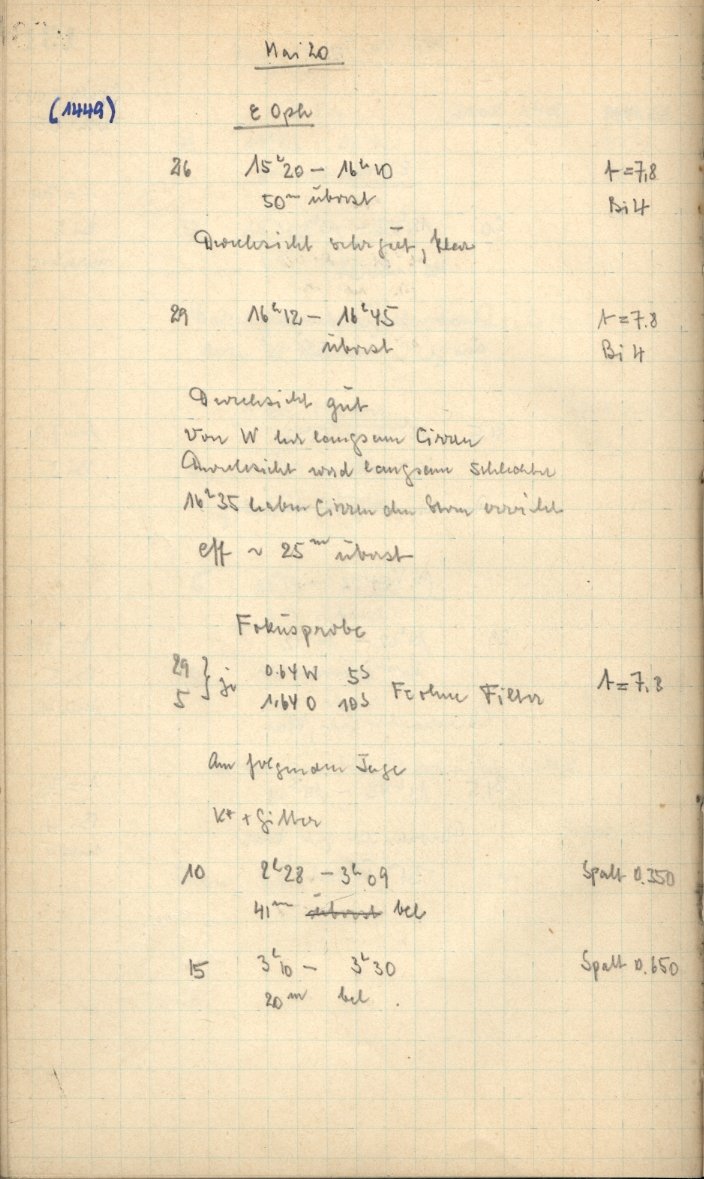 Mai 20
(1449) ε Oph
26 15ʰ20 – 16ʰ10 t = 7,8
50ᵐ überst Bi 4
Durchsicht sehr gut, klar
29 16ʰ12 – 16ʰ45 t = 7.8
überst Bi 4
Durchsicht gut
Von W her langsam Cirren
Durchsicht wird langsam schlechter
16ʰ35 haben Cirren den Stern erreicht
eff ~ 25ᵐ überst
Fokusprobe
29 } je 0.64 W 5ˢ t = 7,8
5 1,64 O 10ˢ Fe ohne Filter
Am folgenden Tage
+ Gitter
10 2ʰ28 – 3ʰ09 Spalt 0.350
41ᵐ ~~überst~~ bel
15 3ʰ10 – 3ʰ30 Spalt 0.650
20ᵐ bel.